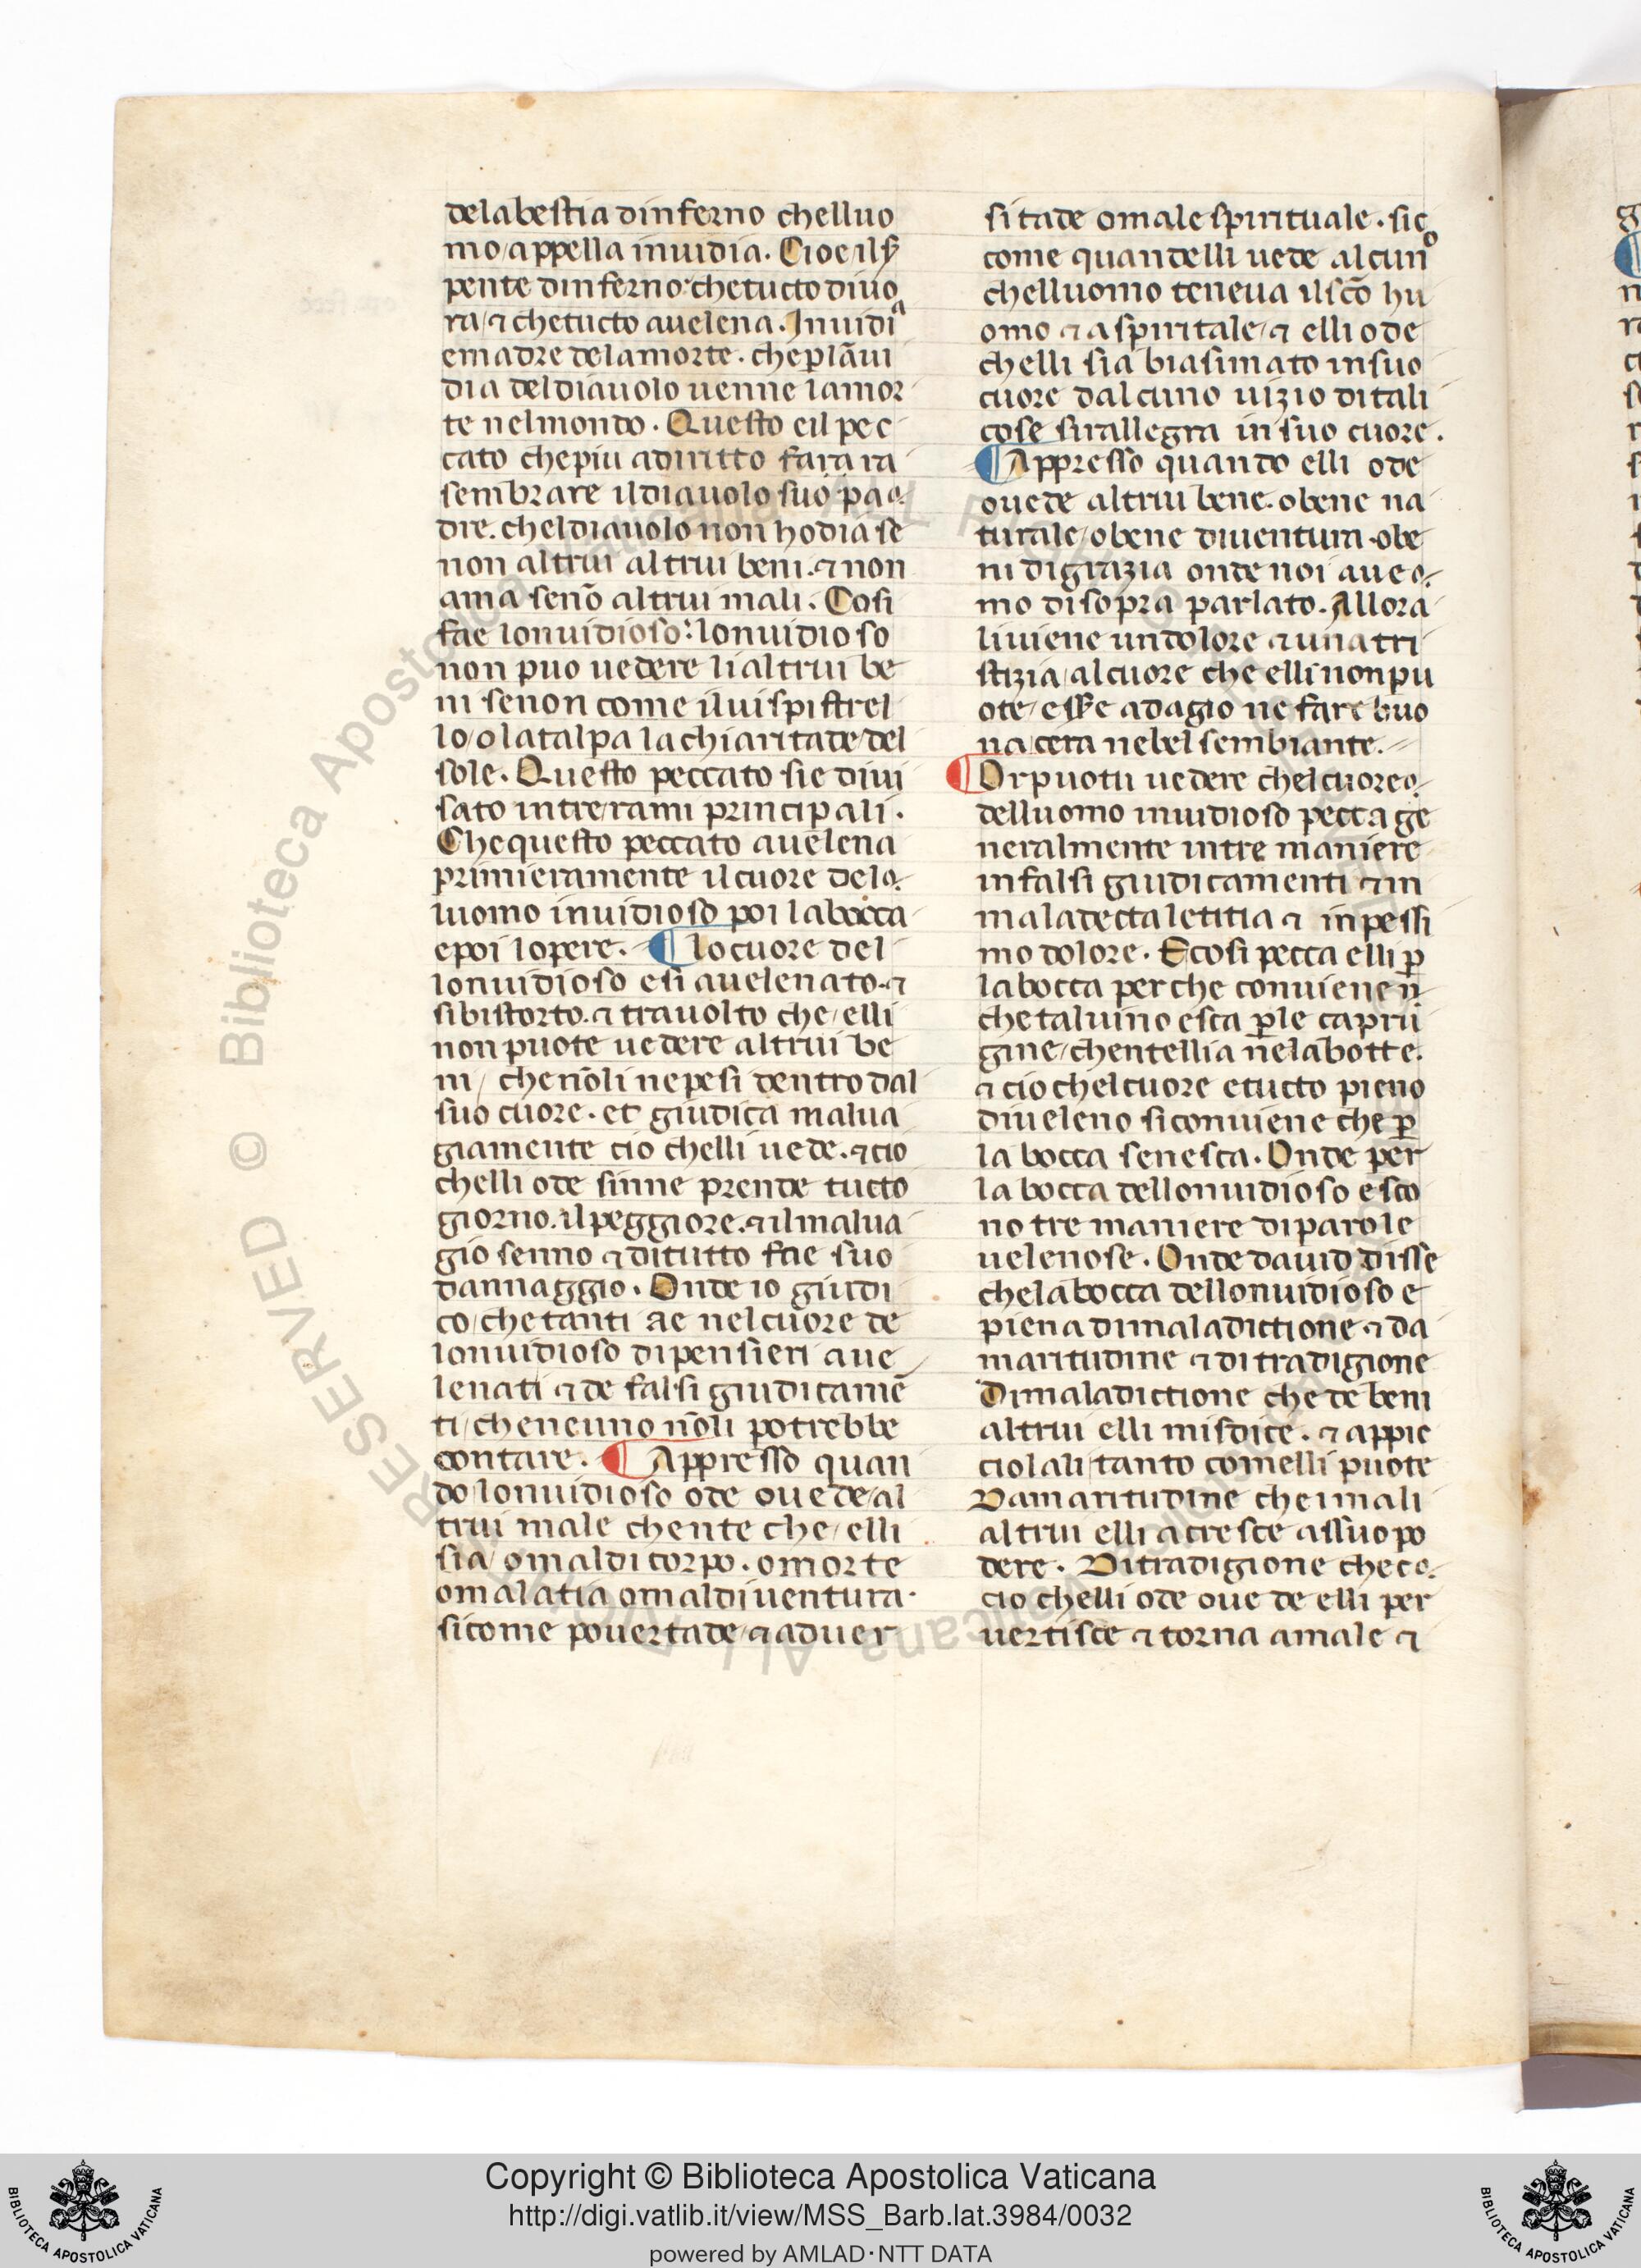 delabestia dinferno chelluo
mo appella inuidia. Cioe ilsꝑ
pente dinferno chetucto diuo
ra ⁊ chetucto auelena. Inuidia
emadre delamorte. cheplãui
dia deldiauolo uenne lamor
te nelmondo. Questo eil pec
cato chepiu adiritto fara ra
sembrare ildiauolo suo pa
dre. cheldiauolo non hodia se
non altrui altrui beni. ⁊ non
ama senõ altrui mali. Cosi
fae lonuidioso: lonuidioso
non puo uedere lialtrui be
ni senon come iluispistrel
lo olatalpa lachiaritade del
sole. Questo peccato sie diui
sato intre rami principali.
Chequesto peccato auelena
primieramente ilcuore delo
uomo inuidioso poi labocca
epoi lopere. ¶ locuore del
lonuidioso esi auelenato. ⁊
sibistorto. ⁊ trauolto che elli
non puote uedere altrui be
ni / che nõli nepesi dentro dal
suo cuore. et giudica malua
giamente cio chelli uede. ⁊ cio
chelli ode sinne prende tucto
giorno. ilpeggiore. ⁊ ilmalua
gio senno ⁊ ditutto fae suo
dannaggio. Onde io giudi
co chetanti ae nelcuore de
lonuidioso dipensieri aue
lenati ⁊ de falsi giudicamẽ
ti cheneuno nõli potrebbe
contare. ¶ Appresso quan
do lonuidioso ode ouede al
trui male chente che elli
sia / omaldi corpo. omorte
omalatia omaldiuentura.
sicome pouertade ⁊ aduer
sitade omale spirituale. sic
come quandelli uede alcuno
chelluomo teneua ilscõ hu
omo ⁊ aspiritale ⁊ elli ode
chelli sia biasimato insuo
cuore dalcuno uizio ditali
cose sirallegra in suo cuore.
¶ Appresso quando elli ode
ouede altrui bene. obene na
turale obene diuentura. obe
ni digrazia onde noi aue
mo disopra parlato. Allora
liuiene undolore ⁊ una tri
stizia alcuore che elli nonpu
ote esse adagio ne fare buo
na cera nebel sembiante.
¶ Orpuotu uedere chelcuore
delluomo inuidioso pecca ge
neralmente intre maniere
infalsi giudicamenti ⁊ in
maladecta letitia ⁊ inpessi
mo dolore. Ecosi pecca elli ꝑ
labocca per che conuiene ñ
che taluino esca ꝑle capru
gine chentellia nelabotte.
⁊ cio chelcuore etucto pieno
diueleno siconuiene che ꝑ
la bocca senesca. Onde per
la bocca dellonuidioso esco
no tre maniere diparole
uelenose. Onde dauid disse
chelabocca dellonuidioso e
piena dimaladictione ⁊ da
maritudine ⁊ di tradigione
Dimaladictione che de beni
altrui elli misdice. ⁊ appic
ciolali tanto comelli puote
Damaritudine cheimali
altrui elli acresce assuopo
dere. Ditradigione chec
cio chelli ode ouede elli per
uertisce ⁊ torna amale ⁊
© Biblioteca Apostolica Vaticana ALL RIGHTS RESERVED
Copyright © Biblioteca Apostolica Vaticana
http://digi.vatlib.it/view/MSS_Barb.lat.3984/0032
powered by AMLAD·NTT DATA
BIBLIOTECA APOSTOLICA VATICANA
BIBLIOTECA APOSTOLICA VATICANA